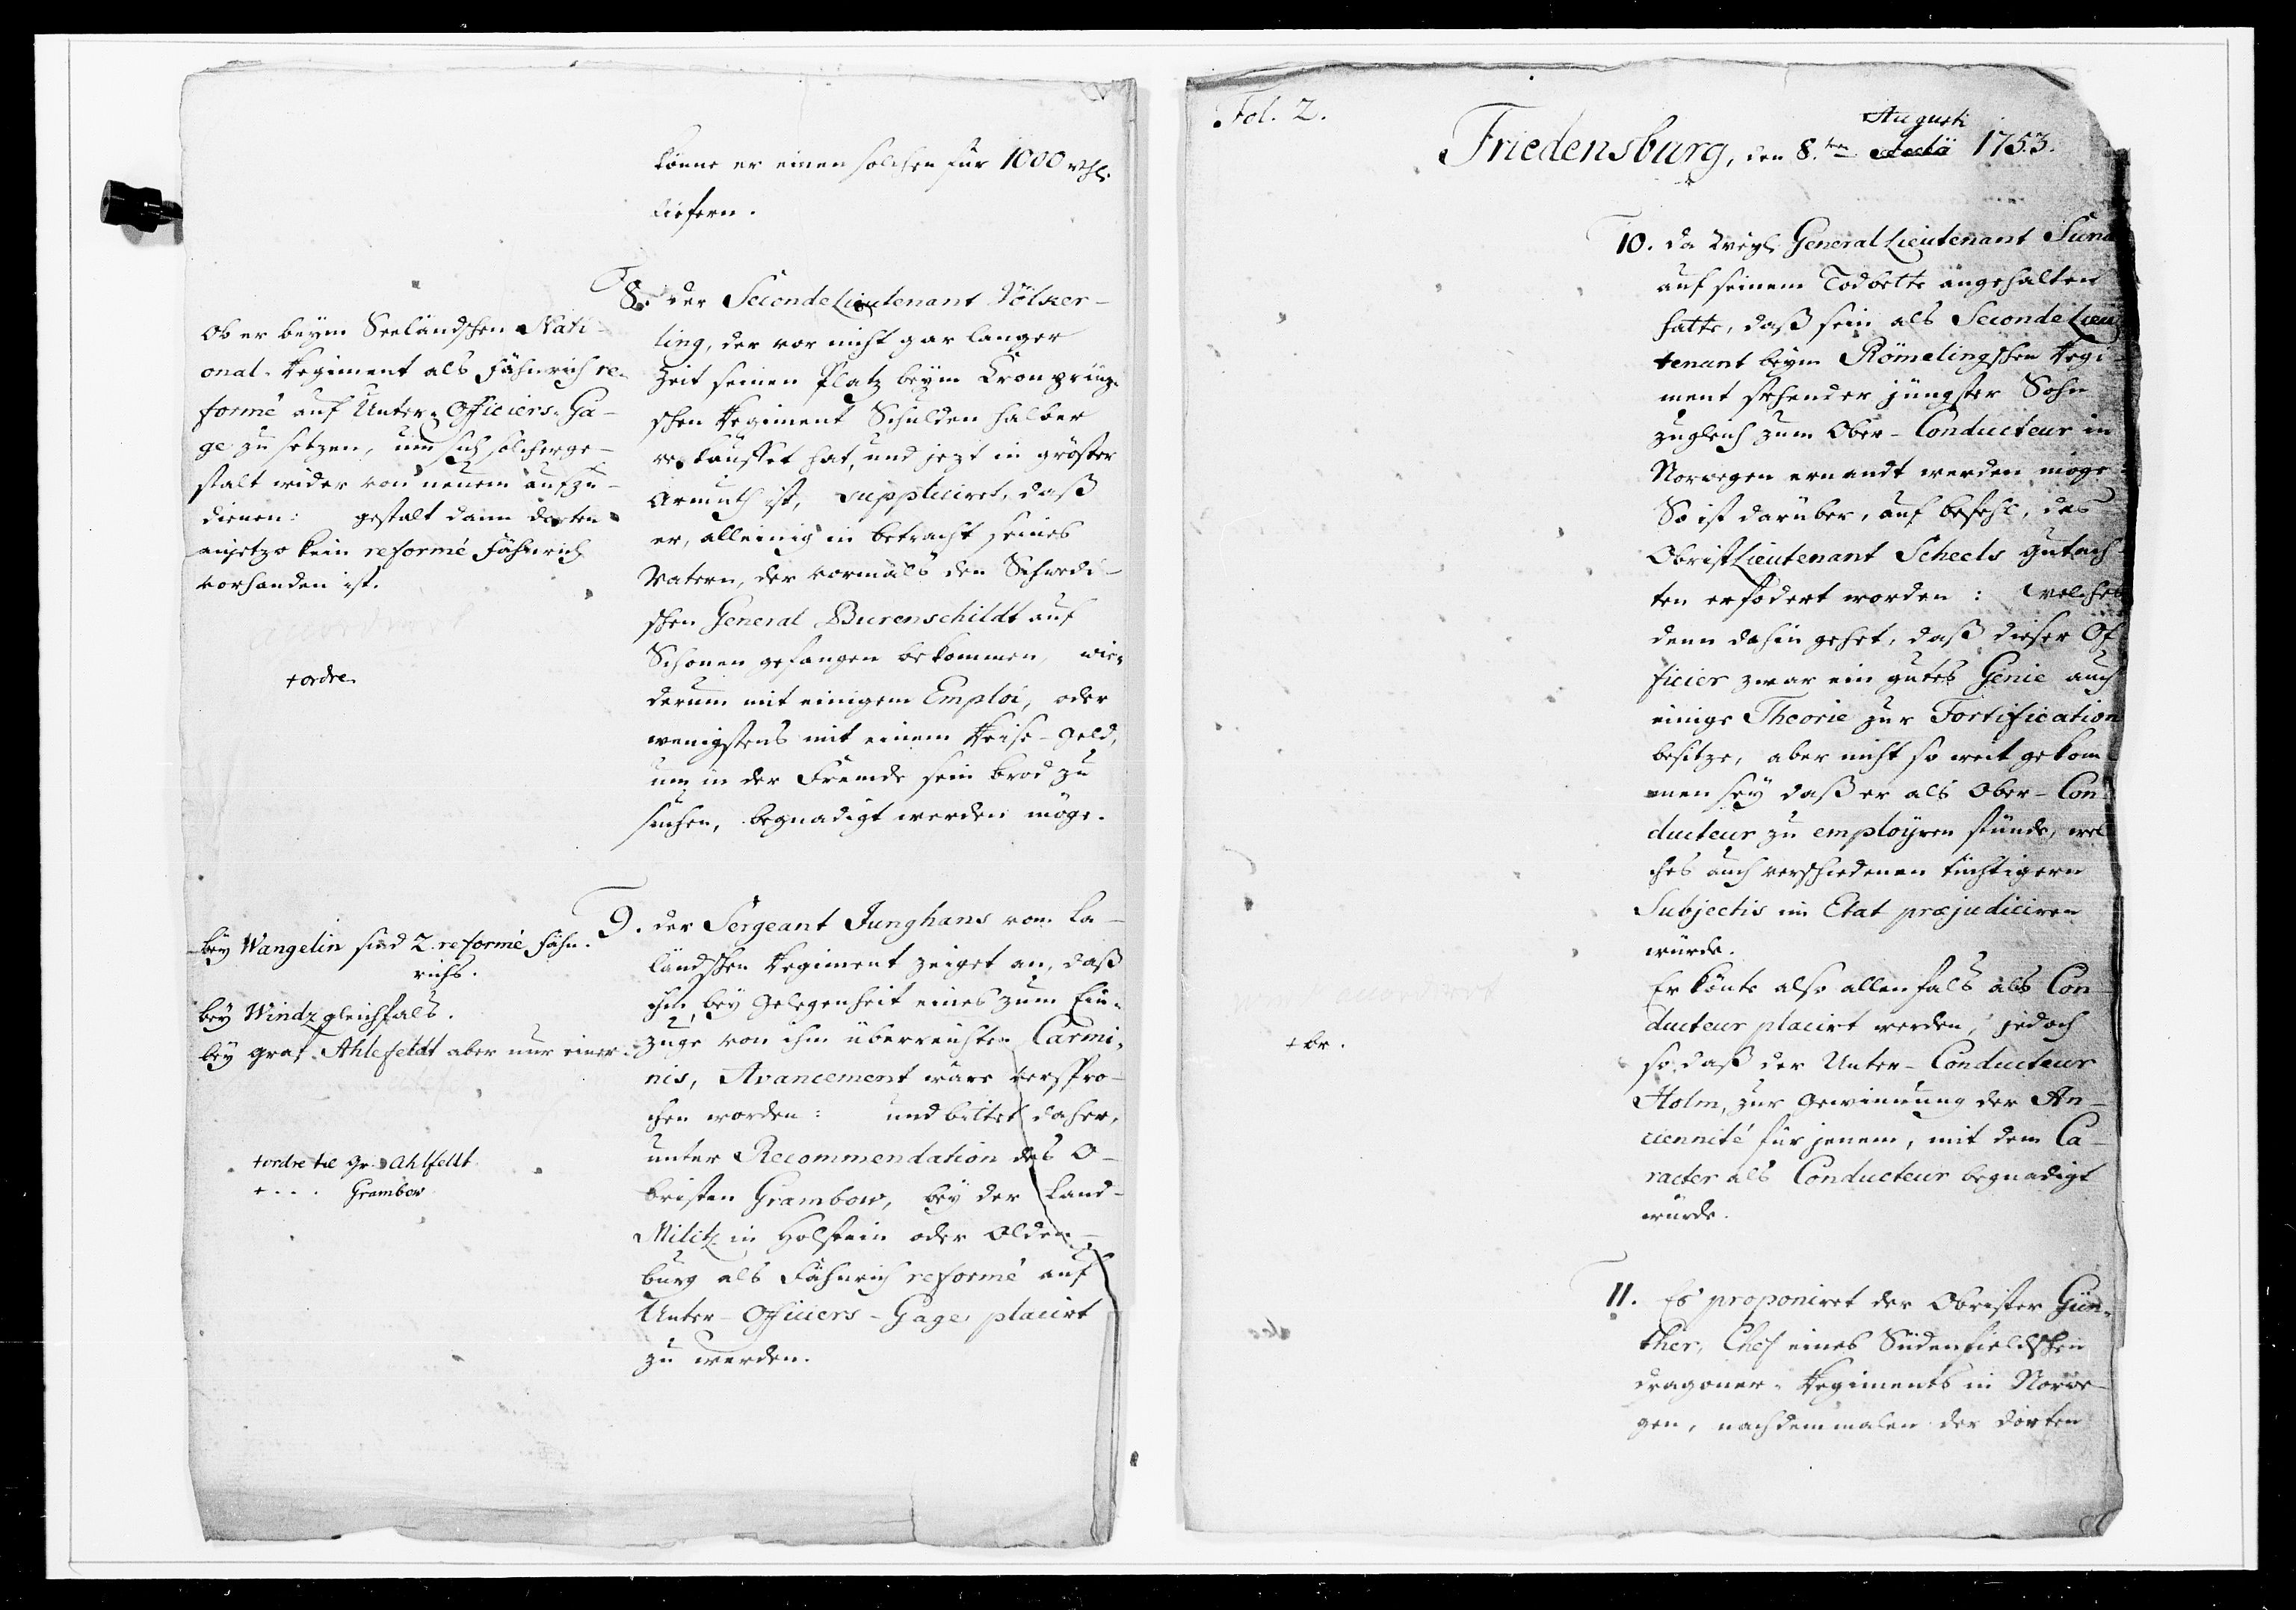 könne er einen solchen für 1000 rthl.
liefern.
8. der SecondeLieutenant Völker-
ling, der vor nicht gar langer
Zeit seinen Platz beym Cronprinz-
schen Regiment Schulden halber
verkauffet hat, und jezt in gröster
Armuth ist, suppliciret, daß
er, alleinig in betracht seines
Vatern, der vormals den Schwedi-
schen General Burenschildt auf
Schonen gefangen bekommen, wie-
derum mit einigem Emploi, oder
wenigstens mit einem Reise-Geld,
um in der Fremde sein brod zu
suchen, begnadigt werden möge.
Ob er beym Seeländschen Nati-
onal-Regiment als Fähnrich re-
formé auf Unter-Officiers-Ga-
ge zu setzen, um sich solcherge-
stalt wider von neuem aufzu-
dienen: gestalt dann dorten
anjetzo kein reformé Fähnrich
vorhanden ist.
accordirt
+ ordre
9. der Sergeant Junghans vom La-
ländschen Regiment zeiget an, daß
ihm bey Gelegenheit eines zum Ein-
zuge von ihm überreichten Carmi-
nis, Avancement wäre verspro-
chen worden: und bittet daher,
unter Recommendation des O-
bristen Grambow, bey der Land-
Militz in Holstein oder Olden-
burg als Fähnrich reformé auf
Unter-Officiers-Gage placirt
zu werden.
bey Wangelin sind 2 reformé Fähn-
richs.
bey Windz gleichfals.
bey Graf Ahlefeldt aber nur einer
+ ordre til Gr. Ahlfeldt
+ . . . Grambow
Fol. 2.
Friedensburg, den 8.ten Augusti 1753.
10. da weyl. General Lieutenant Sund
auf seinem Todbette angehalten
hatte, daß sein als Seconde Lieu-
tenant beym Römelingschen Regi-
ment stehender jüngster Sohn
zugleich zum Ober-Conducteur in
Norwegen ernandt werden möge
So ist darüber, auf befehl, des
ObristLieutenant Scheels Gutach-
ten erfodert worden: welches
denn dahin gehet, daß dieser Of-
ficier zwar ein gutes Genie auch
einige Theorie zur Fortification
besitze, aber nicht so weit gekom-
men sey daß er als Ober-Con-
ducteur zu employren stünde, wel-
ches auch verschiedenen tüchtigern
Subjectis im Etat præjudiciren
würde.
Er könte also allenfals als Con-
ducteur placirt werden, jedoch
so, daß der Unter-Conducteur
Holm, zur Gewinnung der An-
ciennité für jenem, mit dem Ca-
racter als Conducteur begnadigt
würde.
accordirt
+ br.
11. Es proponiret der Obrister Gün-
ther, Chef eines Südenfieldschen
Dragoner-Regiments in Norwe-
gen, nachdemmalen der dorten